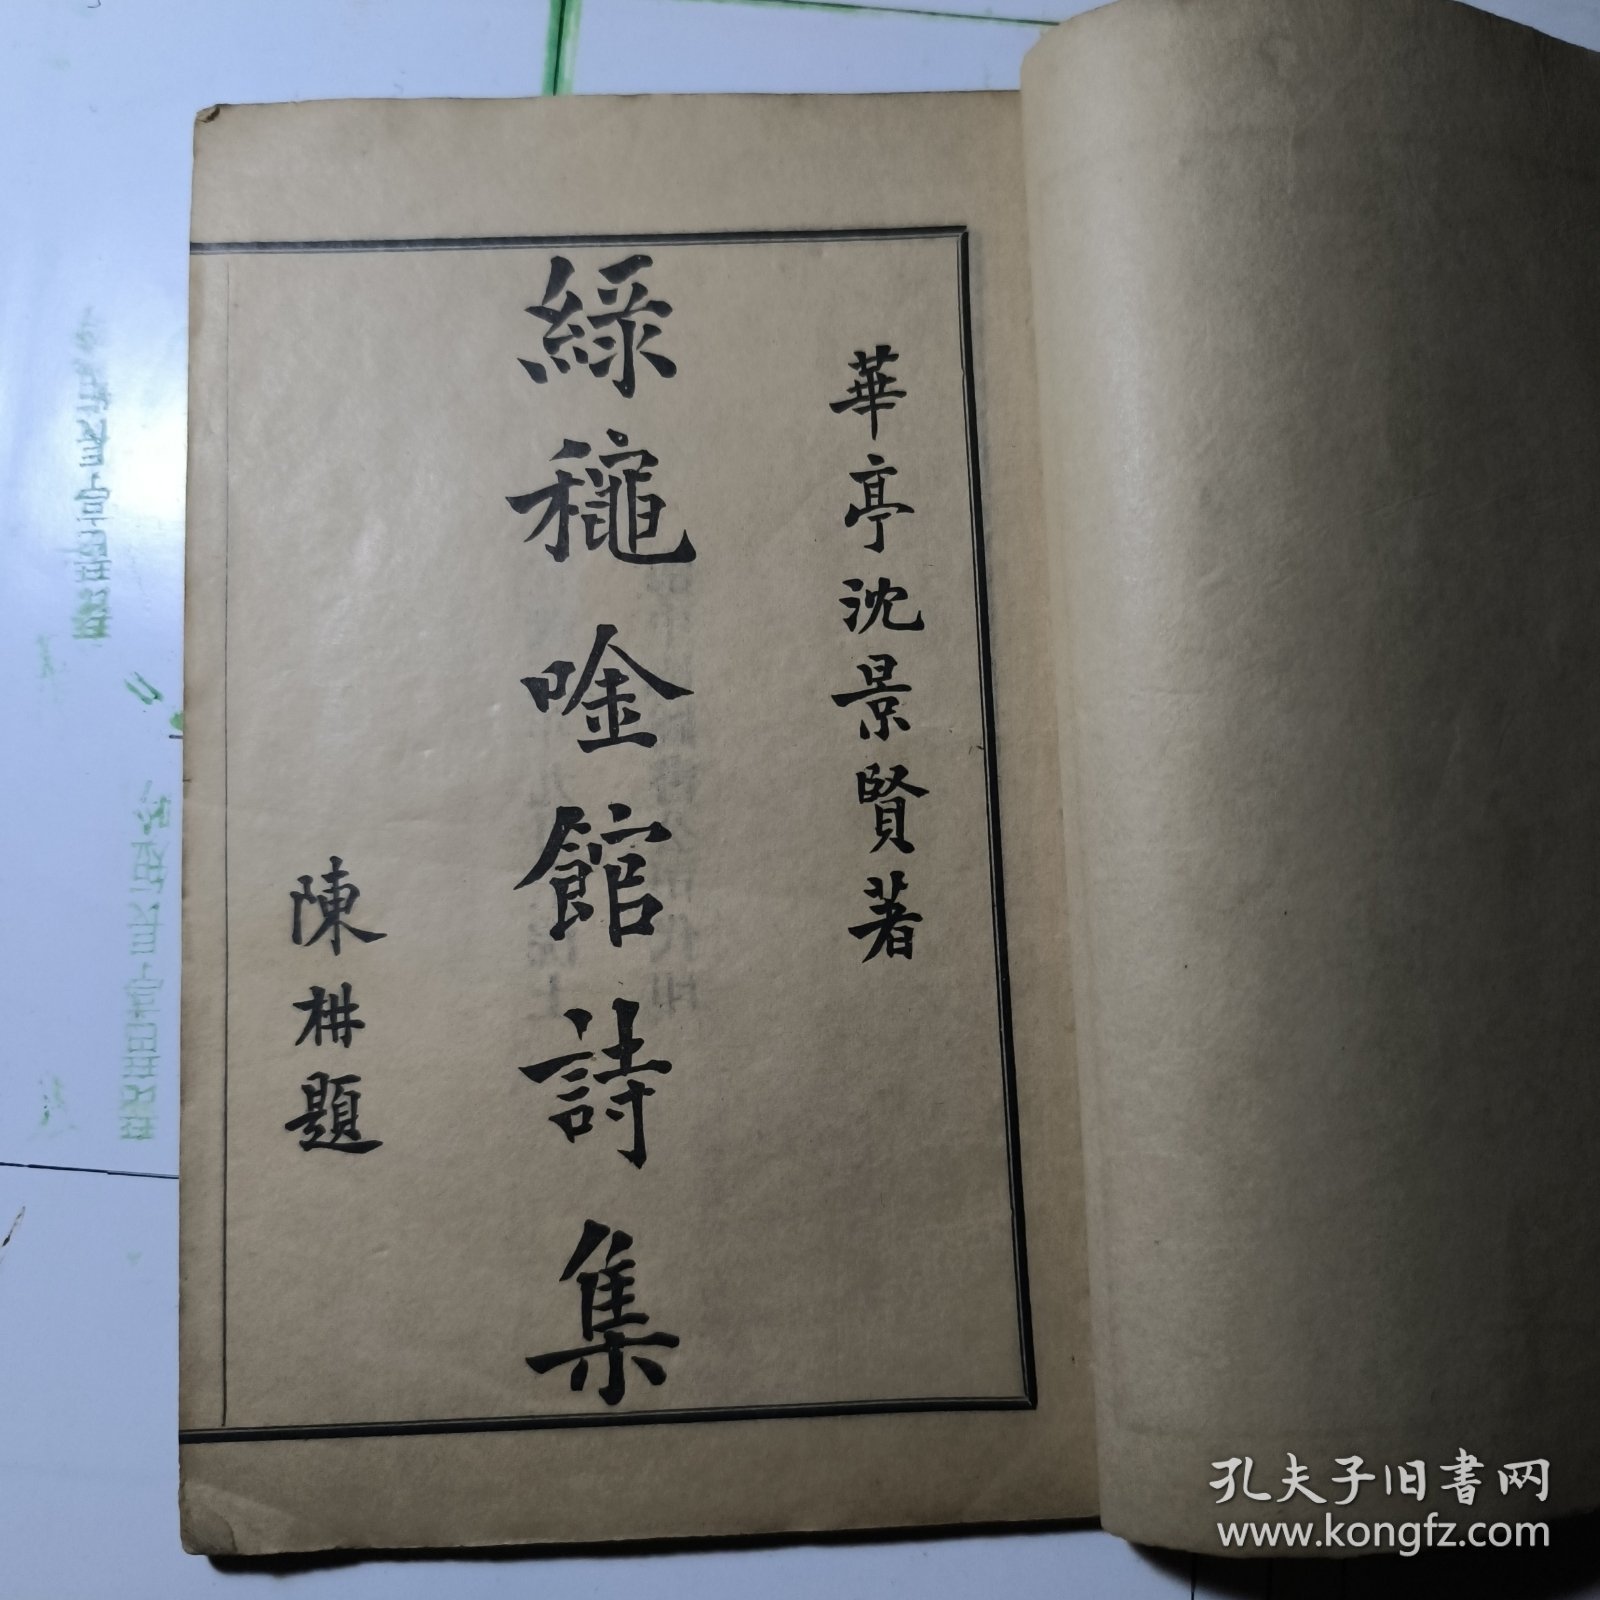 華亭沈景賢著
綠穐唫館詩集
陳枏題
孔夫子旧書网
www.kongfz.com